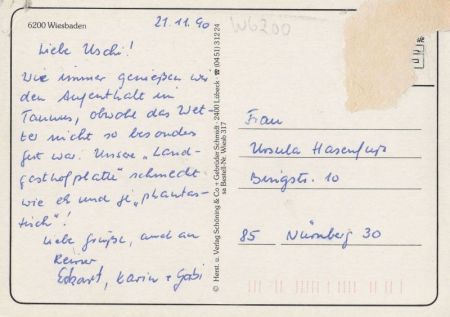 6200 Wiesbaden
21.11.90
W6200
Liebe Uschi!
Wie immer genießen wir
den Aufenthalt im
Taunus, obwohl das Wet-
ter nicht so besonders
gut war. Unsere „Land-
gasthofplatte" schmeckt
wie eh und je „phantas-
tisch"!
Liebe Grüße, auch an
Reiner
Eckart, Karin + Gabi
© Herst. u. Verlag Schöning & Co + Gebrüder Schmidt · 2400 Lübeck ☎ (0451) 31224
sa Bestell-Nr. Wiesb 317
Frau
Ursula Hasenfuss
Bingstr. 10
85 Nürnberg 30